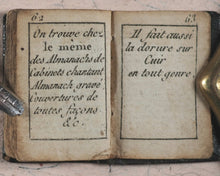 62
On trouve chez
le meme
des Almanachs de
Cabinets chantant
Almanach gravé
Couvertures de
toutes façons
&c.
63
Il fait aussi
la dorure sur
Cuir
en tout genre